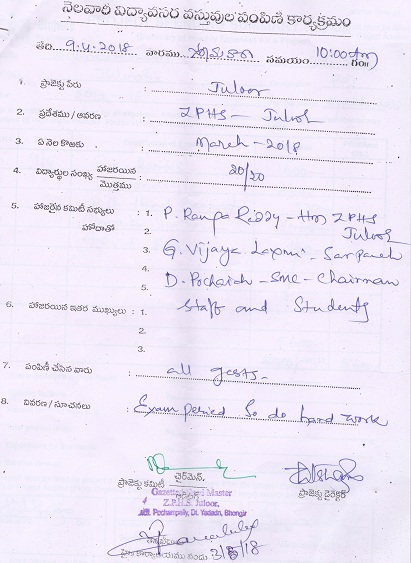 నెలవారి విద్యావసర వస్తువుల పంపిణీ కార్యక్రమం
తేది. 9.4.2018 వారము. సోమవారం సమయం. 10:00am గం॥
1. ప్రాజెక్టు పేరు : Juloor
2. ప్రదేశము / ఆవరణ : ZPHS - Juloor
3. ఏ నెల కొఱకు : March - 2018
4. విద్యార్థుల సంఖ్య హాజరయిన / మొత్తము : 20/20
5. హాజరైన కమిటీ సభ్యులు : 1. P. Ranga Reddy - Hm ZPHS
హోదాతో 2. Juloor
3. G. Vijaya Laxmi - Sarpanch
4.
5. D. Pochaiah - SMC - Chairman
6. హాజరయిన ఇతర ముఖ్యులు : 1. Staff and Students
2.
3.
7. పంపిణీ చేసిన వారు : all gests.
8. వివరణ / సూచనలు : Exam period So do hard work
చైర్‌మెన్,
ప్రాజెక్టు కమిటీ
ప్రాజెక్టు డైరెక్టర్
Gazetted Head Master
Z.P.H.S. Juloor,
M. Pochampally, Dt. Yadadri, Bhongir
కార్యాలయము నందు 3/5/18